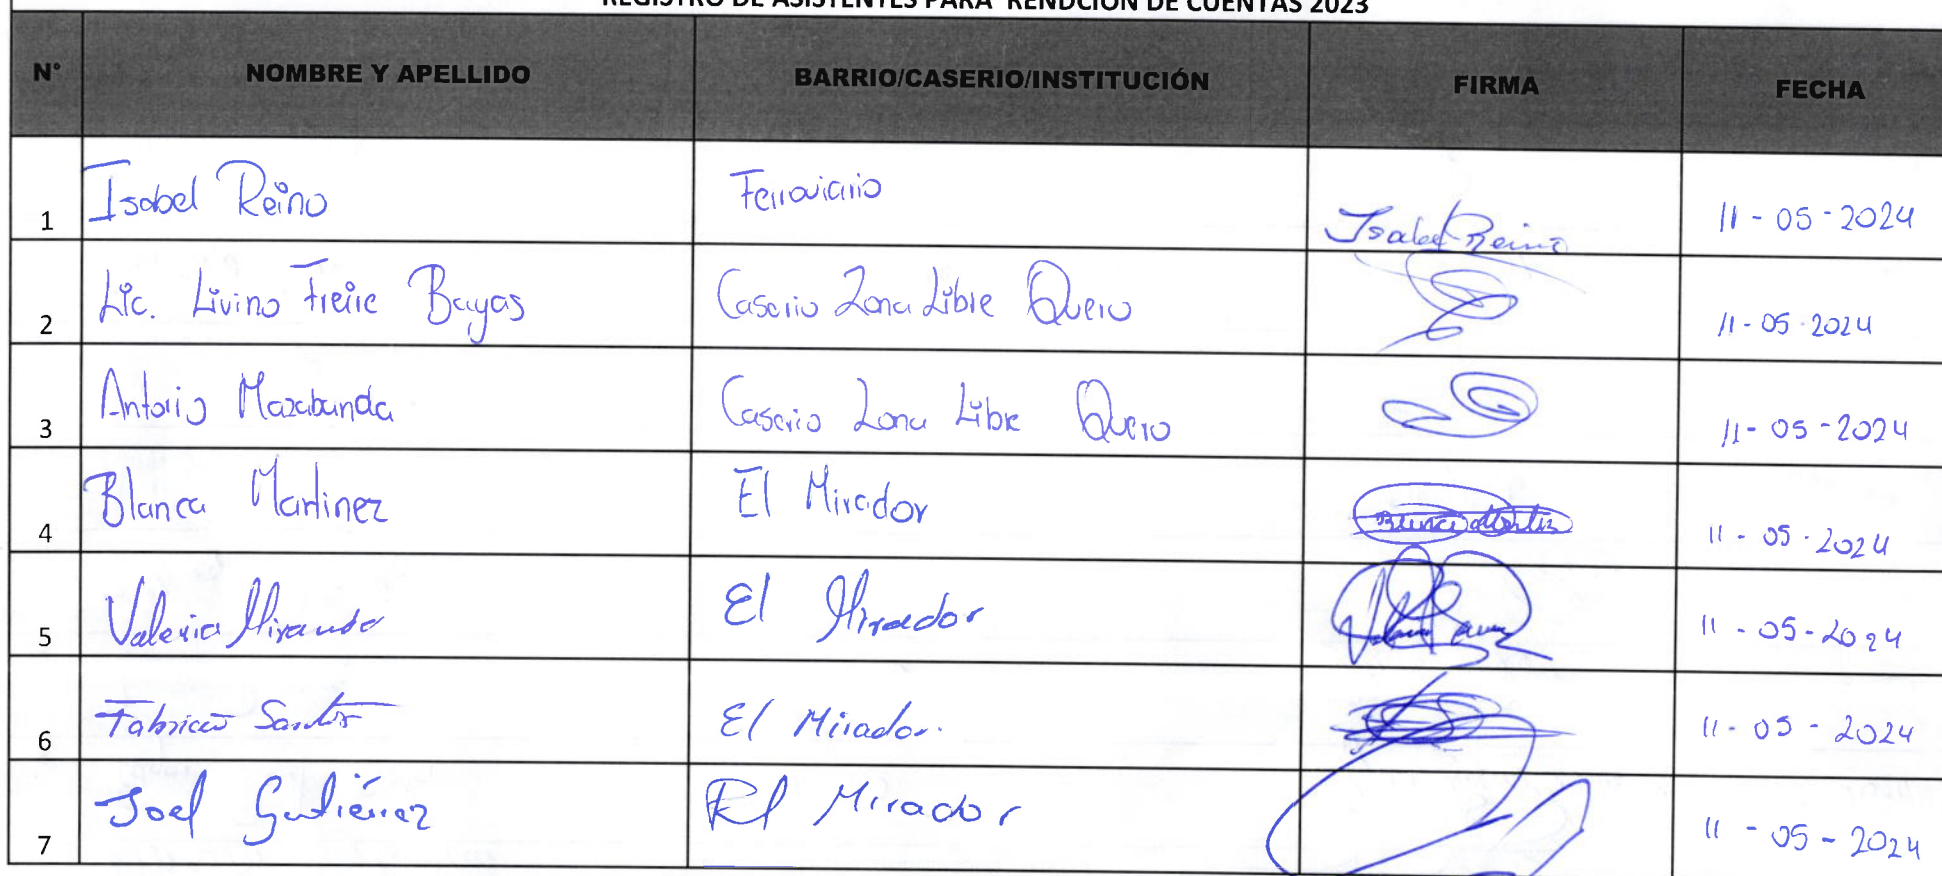 REGISTRO DE ASISTENTES PARA RENDCION DE CUENTAS 2023
N° NOMBRE Y APELLIDO BARRIO/CASERIO/INSTITUCIÓN FIRMA FECHA
1 Isabel Reino Ferroviario Isabel Reino 11-05-2024
2 Lic. Livino Freire Bayas Caserio Zona Libre Quero 11-05-2024
3 Antonio Mazabanda Caserio Zona Libre Quero 11-05-2024
4 Blanca Martinez El Mirador 11-05-2024
5 Valeria Miranda El Mirador 11-05-2024
6 Fabricio Santos El Mirador. 11-05-2024
7 Joel Gutiérrez El Mirador 11-05-2024